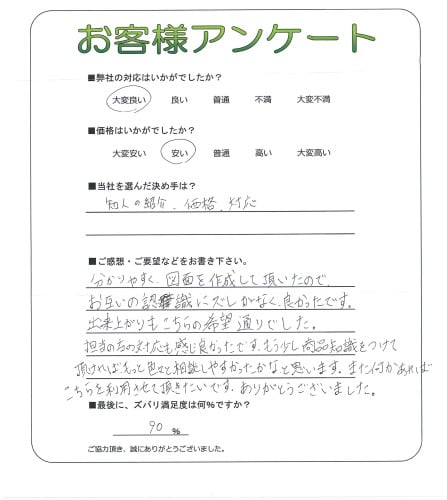 お客様アンケート
■弊社の対応はいかがでしたか？
大変良い 良い 普通 不満 大変不満
■価格はいかがでしたか？
大変安い 安い 普通 高い 大変高い
■当社を選んだ決め手は？
知人の紹介、価格、対応
■ご感想・ご要望などをお書き下さい。
分かりやすく、図面を作成して頂いたので、
お互いの認識にズレがなく、良かったです。
出来上がりもこちらの希望通りでした。
担当の方の対応も感じ良かったです。もう少し商品知識をつけて
頂ければもっと色々と相談しやすかったかなと思います。また何かあれば
こちらを利用させて頂きたいです。ありがとうございました。
■最後に、ズバリ満足度は何％ですか？
90 ％
ご協力頂き、誠にありがとうございました。